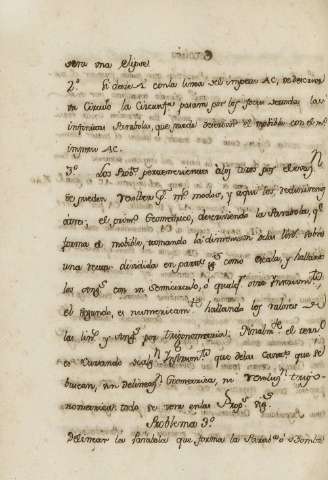 sera una elipse
2.º Si desde A con la linea del impetu AC, se descrive
un Circulo la Circunfª pasara por los focus de todas las
infinitas Parabolas, que puede descrivir el mobible con el mº
impetu AC.
3.º Los Probs. pertenecientes a los tiros por elevacⁿ
se pueden resolver pr. mos. modos, y aqui los reduciremos
a tres; el primº Geometrico, descriviendo la Parabola, qe.
forma el mobile, tomando las dimensiones de las lins. sobre
una recta dividida en partes ygs. como escala, y hallando
los angs. con un semicirculo, ó qualqr. otro Instrumtº,
el segundo, es numericamte. hallando los valores de
las lins. y angs. por trigonometria; Finalmte. el tercº
es usando de algⁿ Instrumtº que de las cantes. que se
buscan, sin delineacⁿ Geometrica, ni resolucⁿ trigo-
nometrica, todo se vera en las Props. sigs.
Problema 3º
Delinear la Parabola que forma la Bala ó Bomba